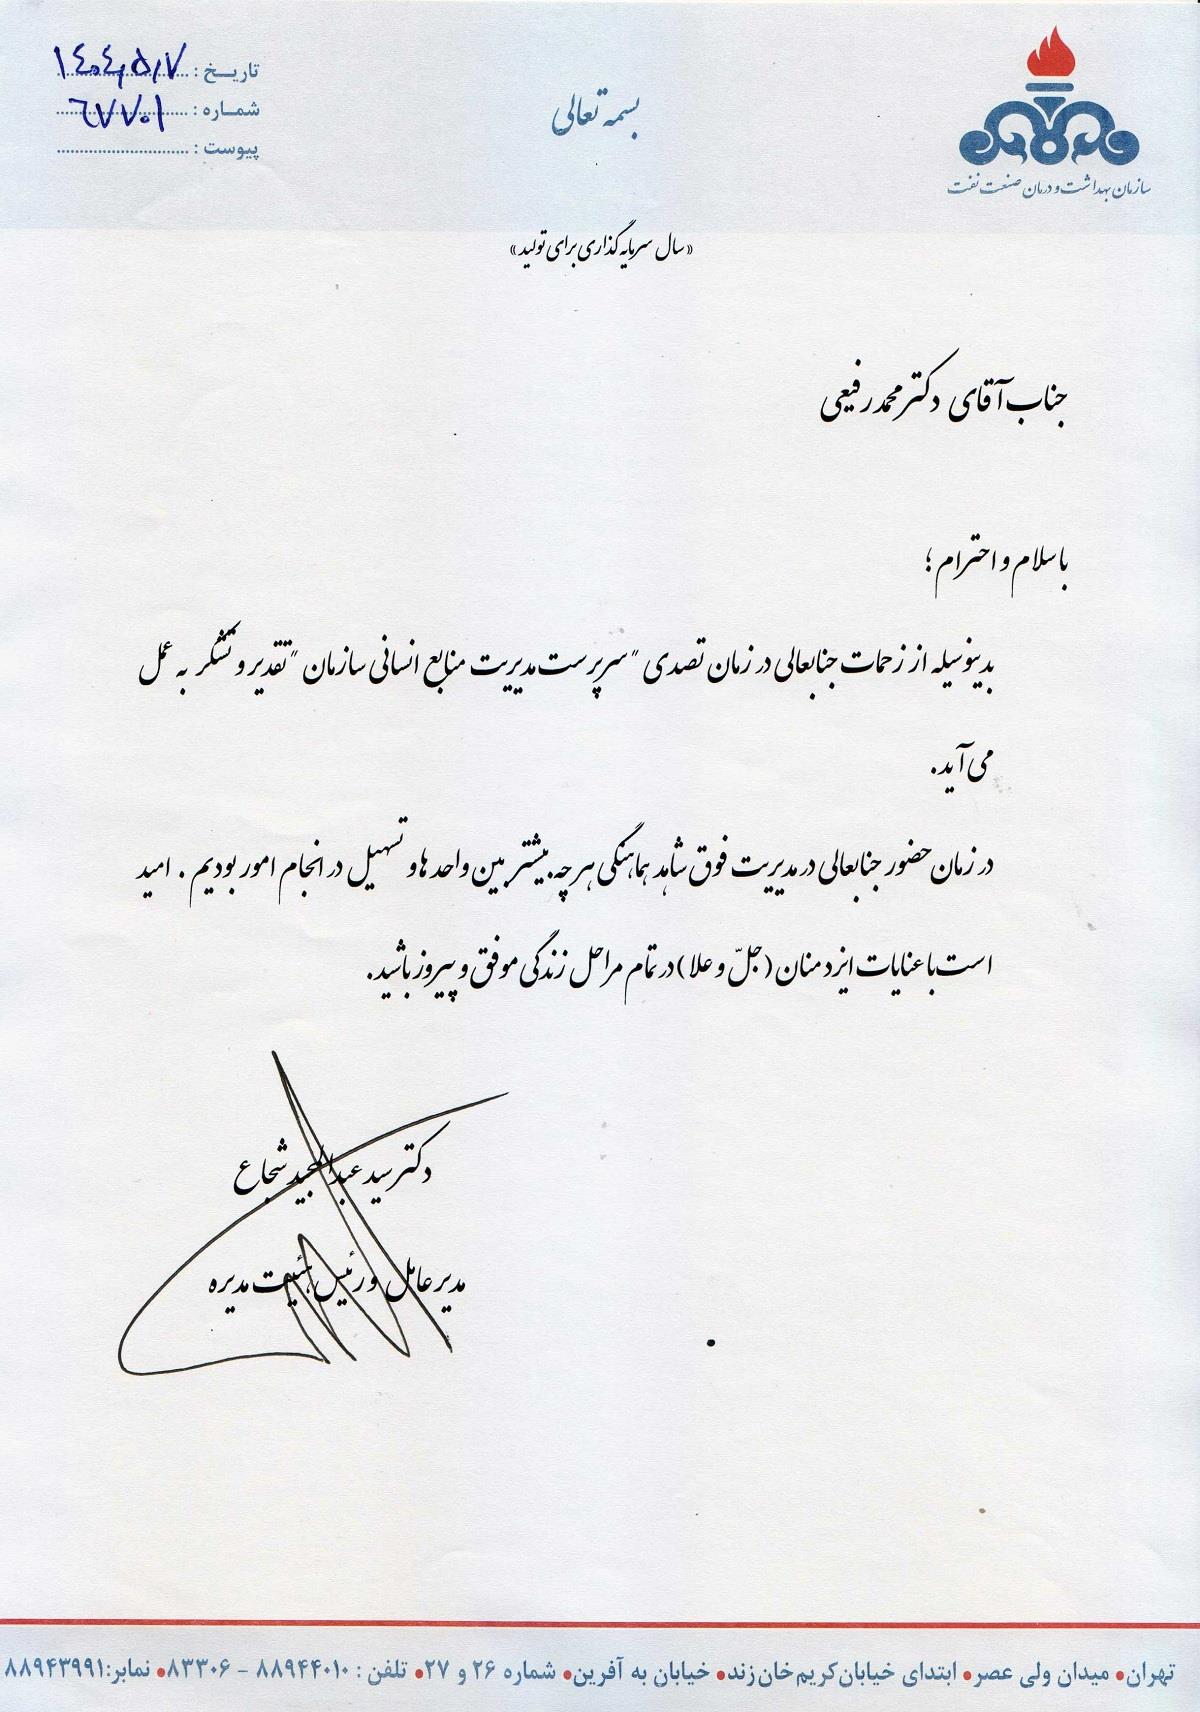 سازمان بهداشت و درمان صنعت نفت
بسمه تعالی
تاریخ : ۱۴۰۴,۵,۷
شماره : ۶۷۷۰۱
پیوست :
«سال سرمایه گذاری برای تولید»
جناب آقای دکتر محمد رفیعی
با سلام و احترام ؛
بدینوسیله از زحمات جنابعالی در زمان تصدی "سرپرست مدیریت منابع انسانی سازمان" تقدیر و تشکر به عمل
می آید.
در زمان حضور جنابعالی در مدیریت فوق شاهد هماهنگی هرچه بیشتر بین واحد ها و تسهیل در انجام امور بودیم . امید
است با عنایات ایزد منان (جلّ و علا) در تمام مراحل زندگی موفق و پیروز باشید.
دکتر سید عبدالمجید شجاع
مدیر عامل و رئیس هئیت مدیره
تهران • میدان ولی عصر • ابتدای خیابان کریم خان زند • خیابان به آفرین • شماره ۲۶ و ۲۷ • تلفن : ۸۸۹۴۴۰۱۰ - ۸۳۳۰۶ • نمابر: ۸۸۹۴۳۹۹۱